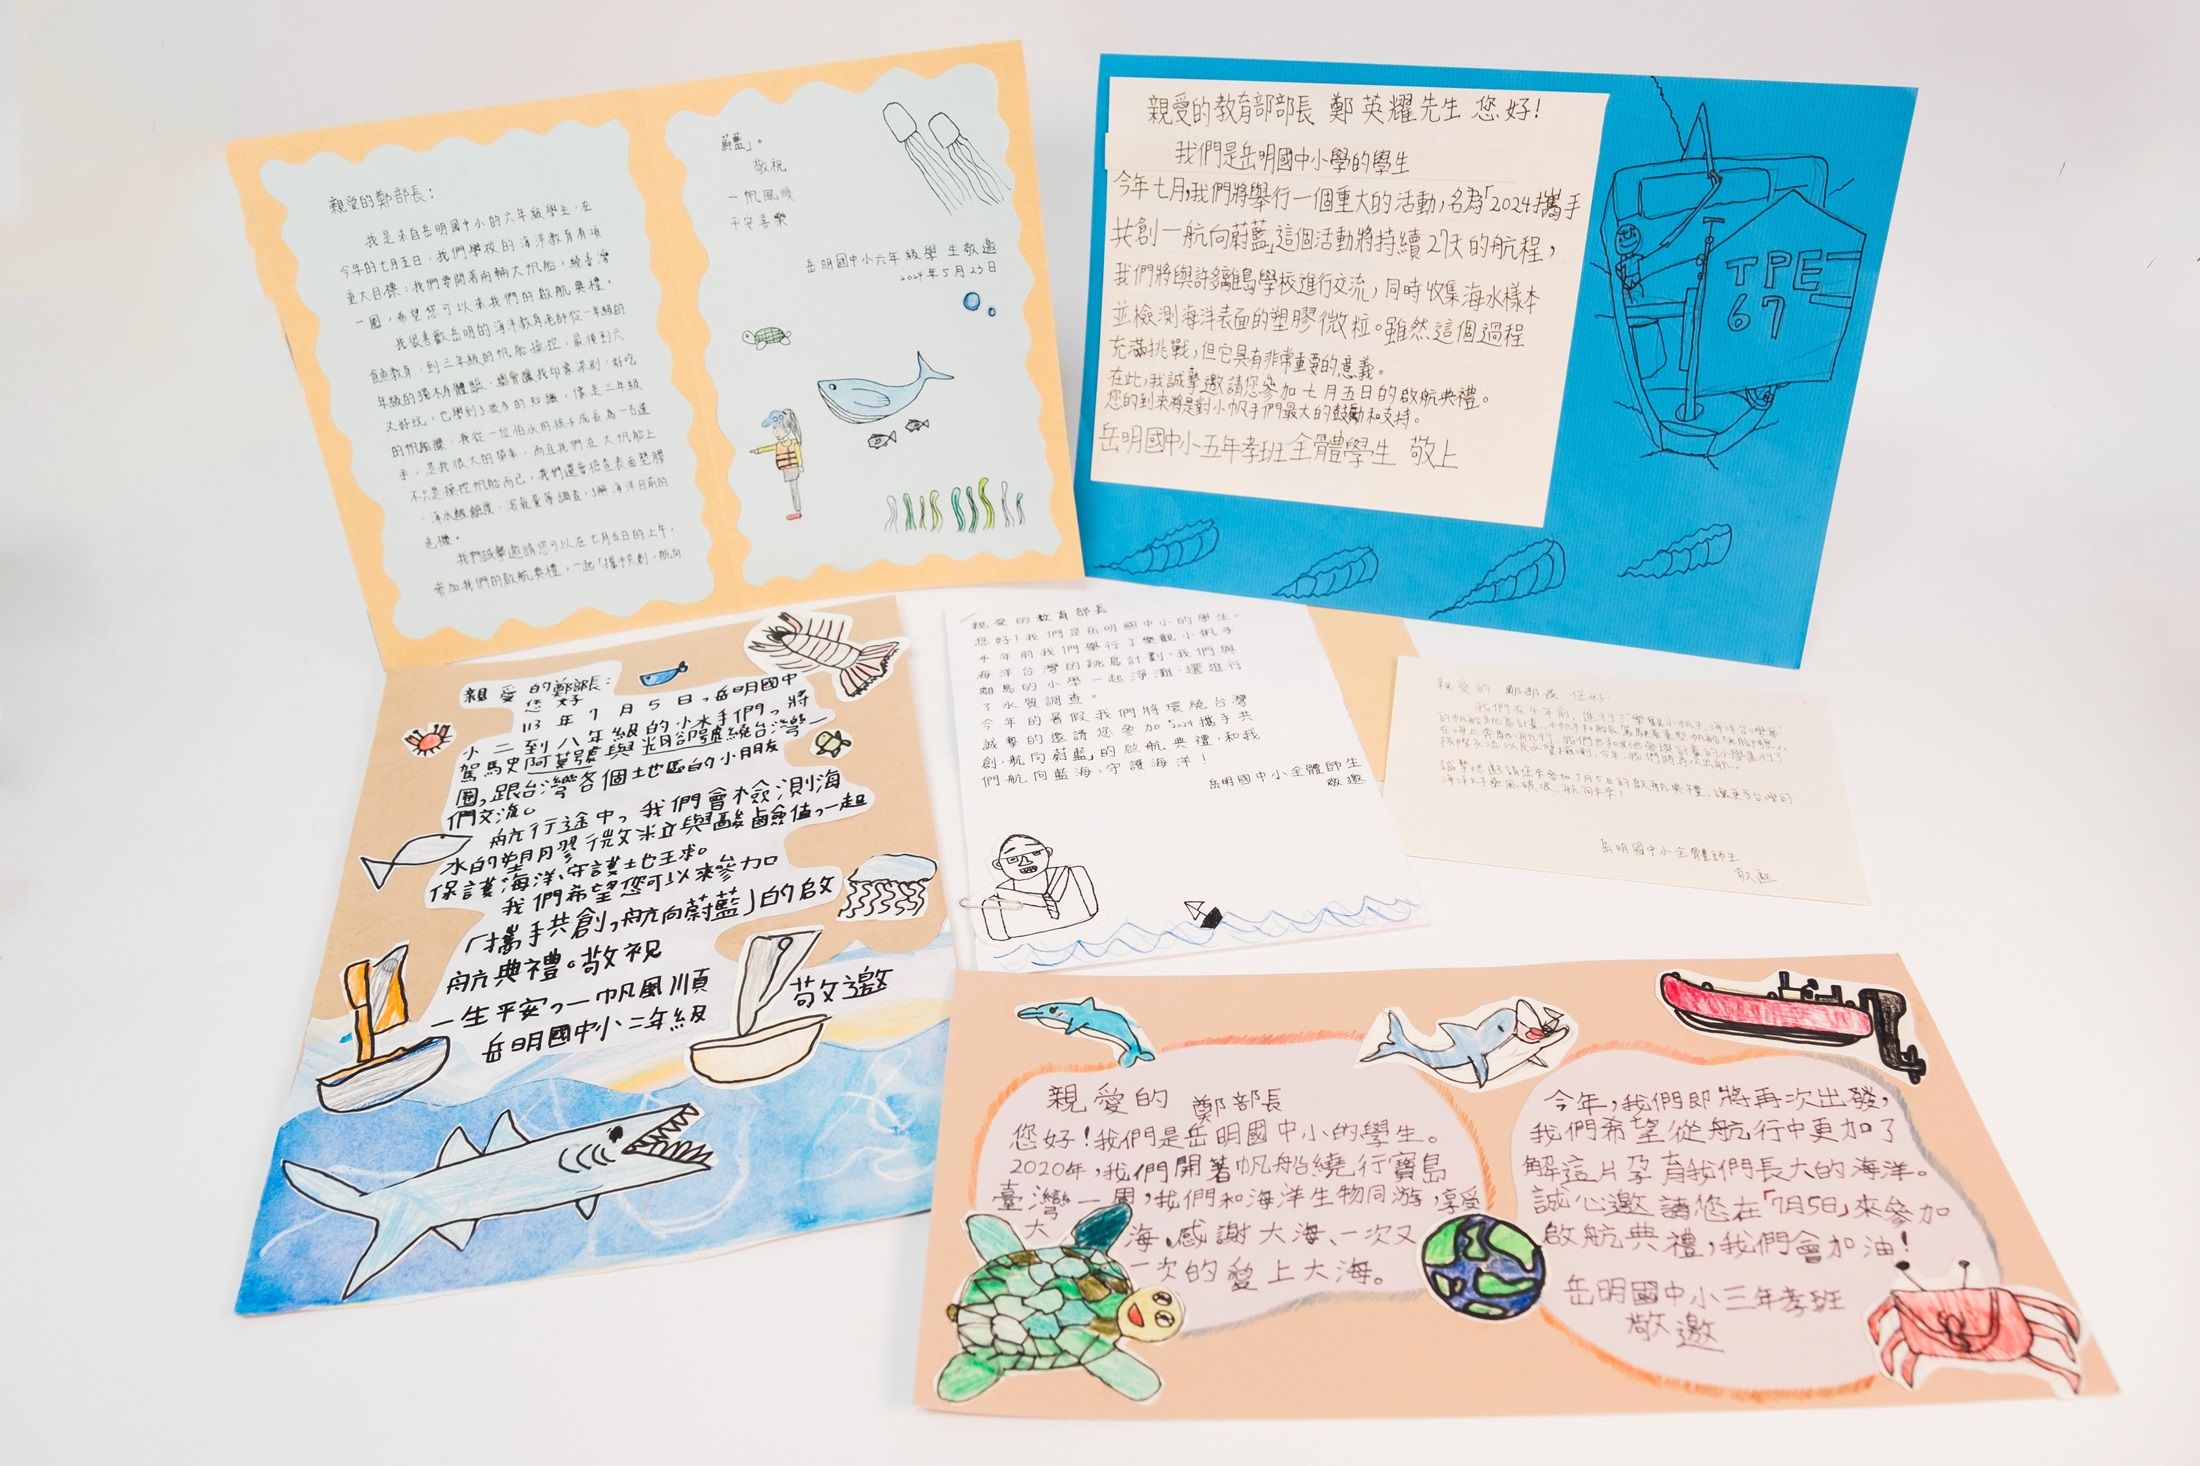 親愛的鄭部長：
我是來自岳明國中小的六年級學生，在
今年的七月五日，我們學校的海洋教育有項
重大目標：我們要開著兩輛大帆船，繞臺灣
一圈，希望您可以來我們的啟航典禮。
我很喜歡岳明的海洋教育老師從一年級的
食魚教育，到三年級的帆船操控，最後到六
年級的獨木舟體驗，總會讓我印象深刻，好吃
又好玩，也學到了很多的知識，像是三年級
的帆船課，我從一位怕水的孩子成長為一名選
手，是我很大的榮幸，而且我們在大帆船上
不只是操控帆船而已，我們還會檢查表面塑膠
、海水酸鹼度、溶氧量等調查，了解海洋目前的
危機。
我們誠摯邀請您可以在七月五日的上午，
參加我們的啟航典禮，一起「攜手共創，航向
蔚藍」。
敬祝
一帆風順
平安喜樂
岳明國中小六年級學生敬邀
2024年5月23日
親愛的教育部部長 鄭英耀先生 您好！
我們是岳明國中小學的學生
今年七月，我們將舉行一個重大的活動，名為「2024攜手
共創一航向蔚藍」這個活動將持續27天的航程，
我們將與許多離島學校進行交流，同時收集海水樣本
並檢測海洋表面的塑膠微粒。雖然這個過程
充滿挑戰，但它具有非常重要的意義。
在此，我誠摯邀請您參加七月五日的啟航典禮。
您的到來將是對小帆手們最大的鼓勵和支持。
岳明國中小五年孝班全體學生 敬上
TPE
67
親愛的鄭部長：
您好
113年7月5日，岳明國中
小二到八年級的小水手們，將
駕駛阿莫號與光卻號繞台灣一
圈，跟台灣各個地區的小朋友
們交流。
航行途中，我們會檢測海
水的塑膠微粒與酸鹼值，一起
保護海洋、守護地球。
我們希望您可以來參加
「攜手共創，航向蔚藍」的啟
航典禮。敬祝
一生平安，一帆風順
岳明國中小二年級 敬邀
親愛的教育部長
您好！我們是岳明國中小的學生。
4年前我們舉行了樂觀小帆手
海洋台灣的跳島計劃，我們與
離島的小學一起淨灘，還進行
了水質調查。
今年的暑假我們將環繞台灣
誠摯的邀請您參加「2024攜手共
創，航向蔚藍」的啟航典禮，和我
們航向藍海，守護海洋！
岳明國中小全體師生
敬邀
親愛的 鄭部長 您好：
我們在4年前，進行了「樂觀小帆手，海洋台灣島」
誠摯地邀請您來參加7月5日的啟航典禮，讓更多台灣的
岳明國中小全體師生
敬邀
親愛的 鄭部長
您好！我們是岳明國中小的學生。
2020年，我們開著帆船繞行寶島
臺灣一周，我們和海洋生物同游，享受
大海、感謝大海、一次又
一次的愛上大海。
今年，我們即將再次出發，
我們希望從航行中更加了
解這片孕育我們長大的海洋。
誠心邀請您在「7月5日」來參加
啟航典禮，我們會加油！
岳明國中小三年孝班
敬邀